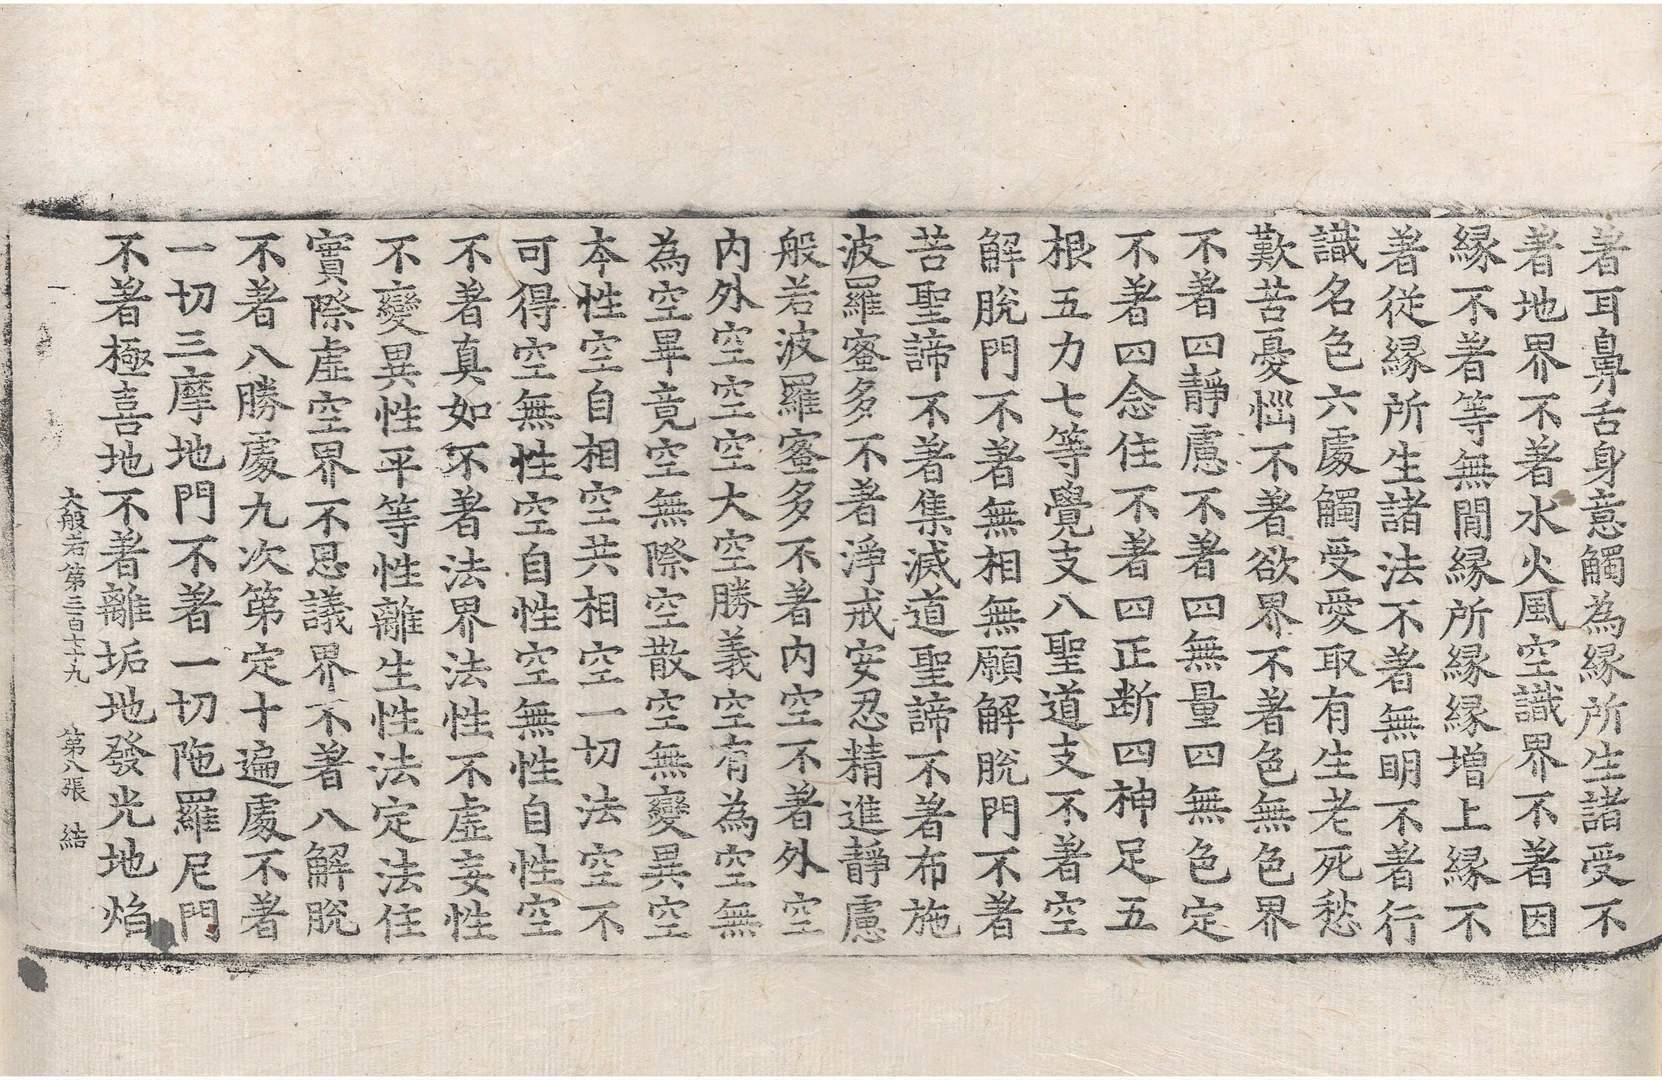 著耳鼻舌身意觸為縁所生諸受不
著地界不著水火風空識界不著因
縁不著等無間縁所縁縁增上縁不
著從縁所生諸法不著無明不著行
識名色六處觸受愛取有生老死愁
歎苦憂惱不著欲界不著色無色界
不著四靜慮不著四無量四無色定
不著四念住不著四正断四神足五
根五力七等覺支八聖道支不著空
解脫門不著無相無願解脫門不著
苦聖諦不著集滅道聖諦不著布施
波羅蜜多不著淨戒安忍精進靜慮
般若波羅蜜多不著内空不著外空
内外空空空大空勝義空有為空無
為空畢竟空無際空散空無變異空
本性空自相空共相空一切法空不
可得空無性空自性空無性自性空
不著真如不著法界法性不虛妄性
不變異性平等性離生性法定法住
實際虛空界不思議界不著八解脫
不著八勝處九次第定十遍處不著
一切三摩地門不著一切陁羅尼門
不著極喜地不著離垢地發光地焰
大般若第三百七十九 第八張 結